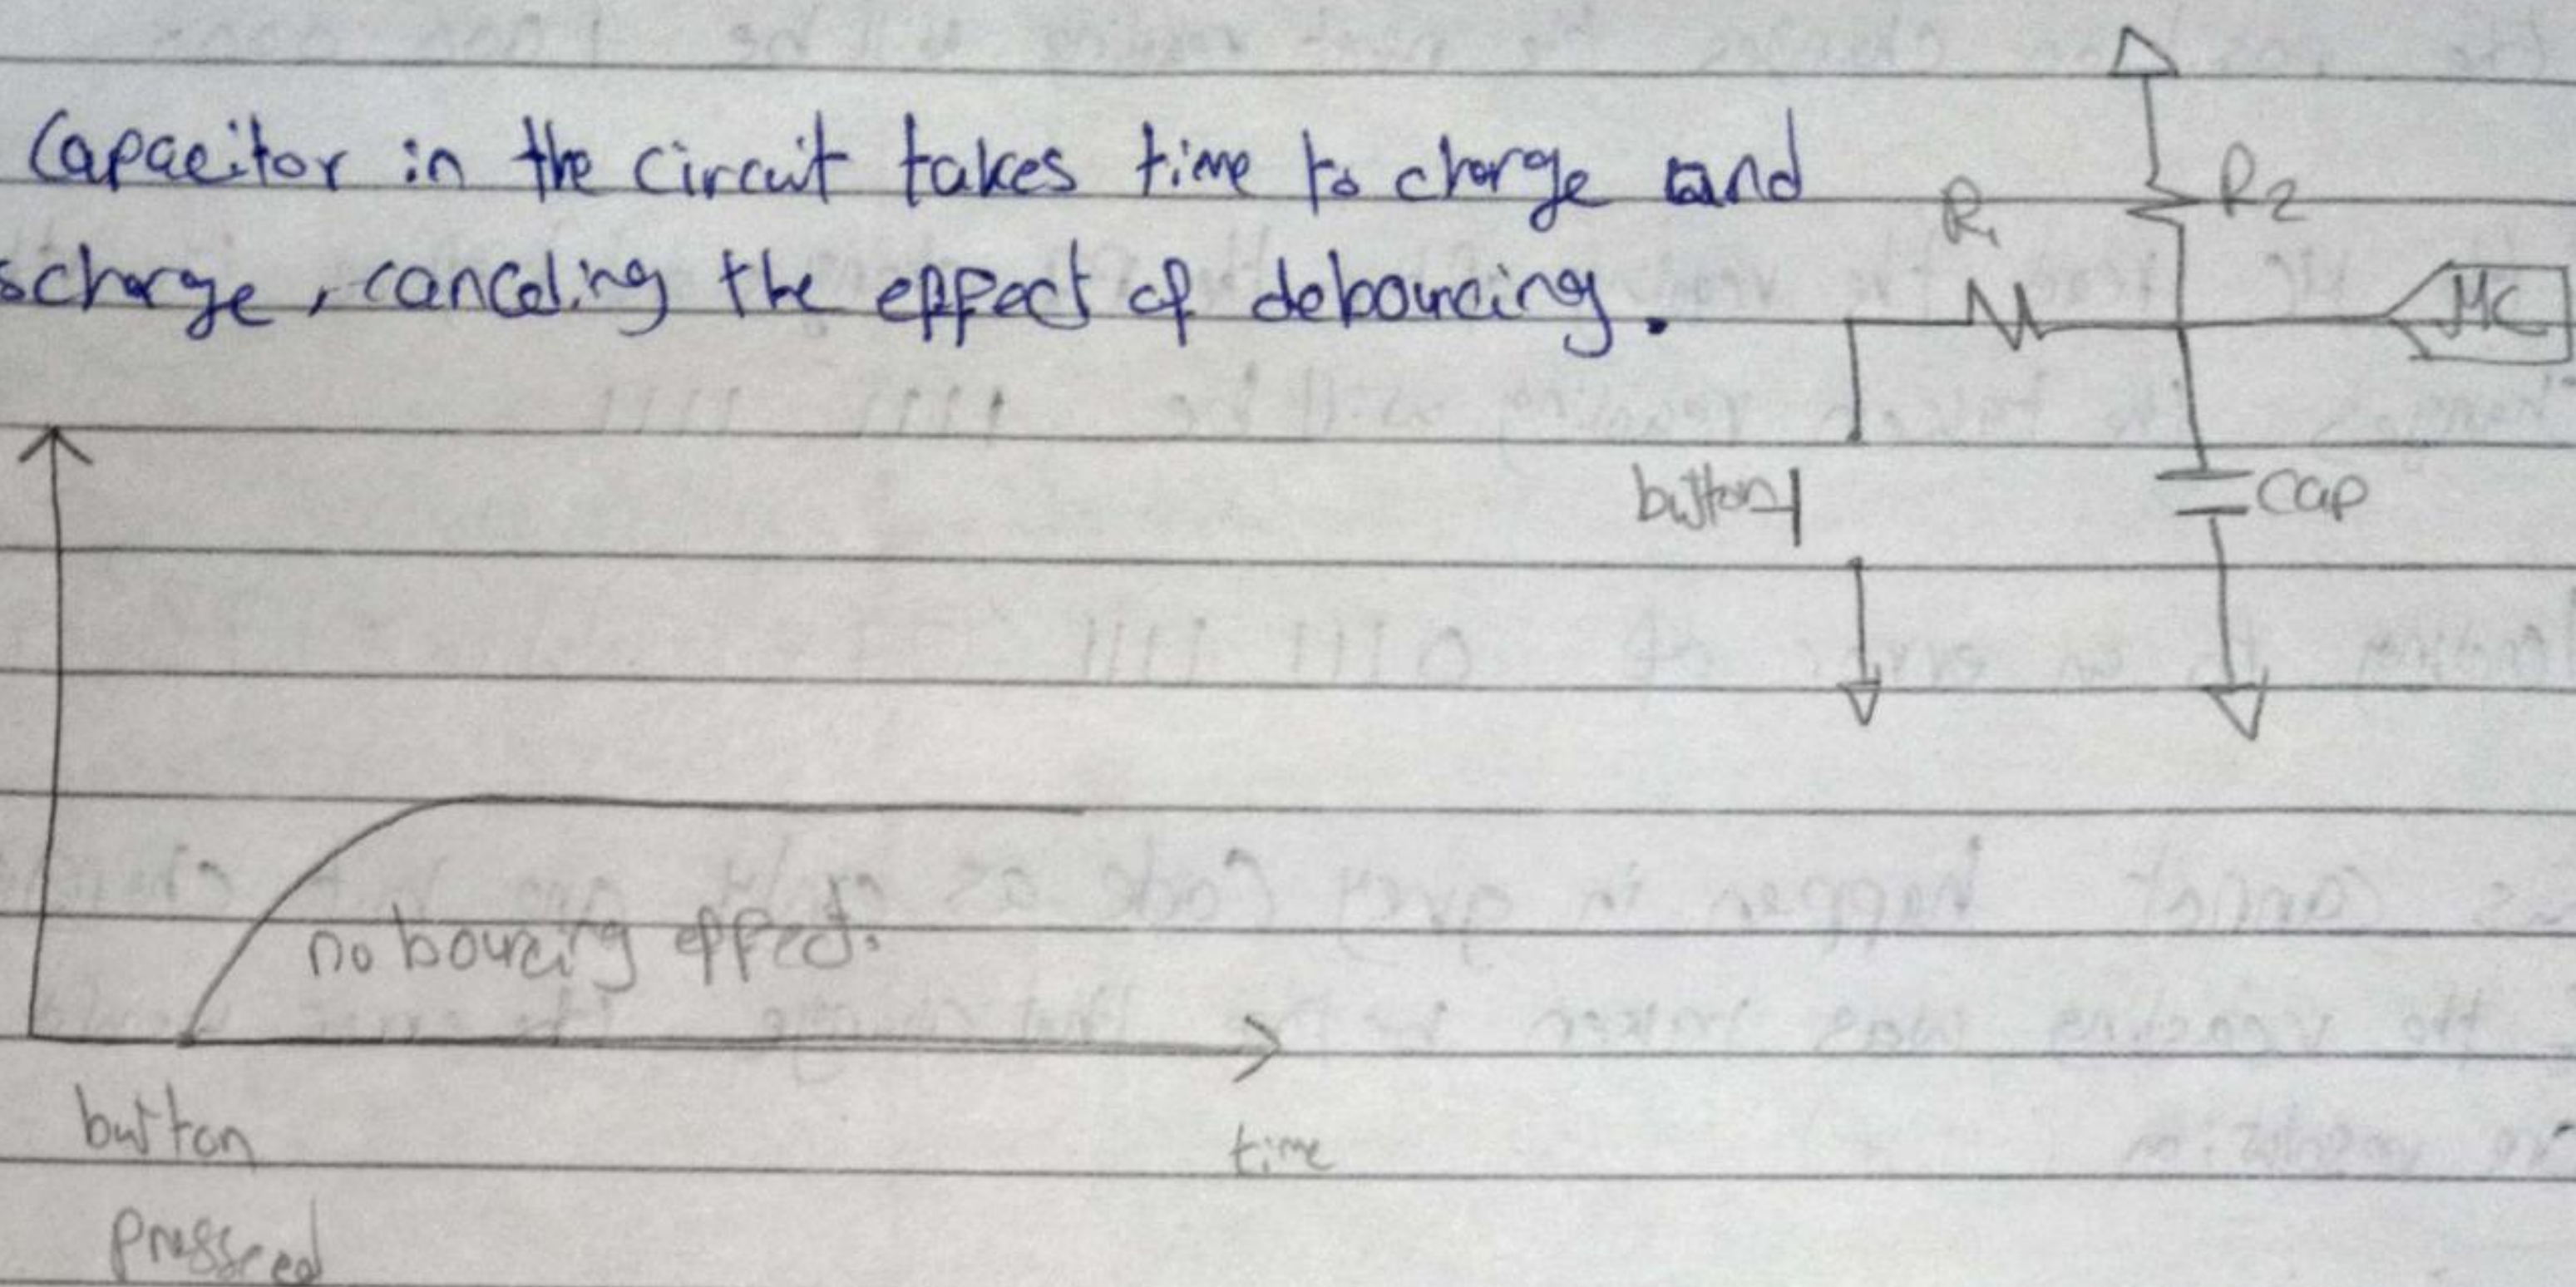 Capacitor in the circuit takes time to charge and
scharge, canceling the effect of debouncing.
R1
R2
MC
button
cap
no bouncing effect.
button
pressed
time